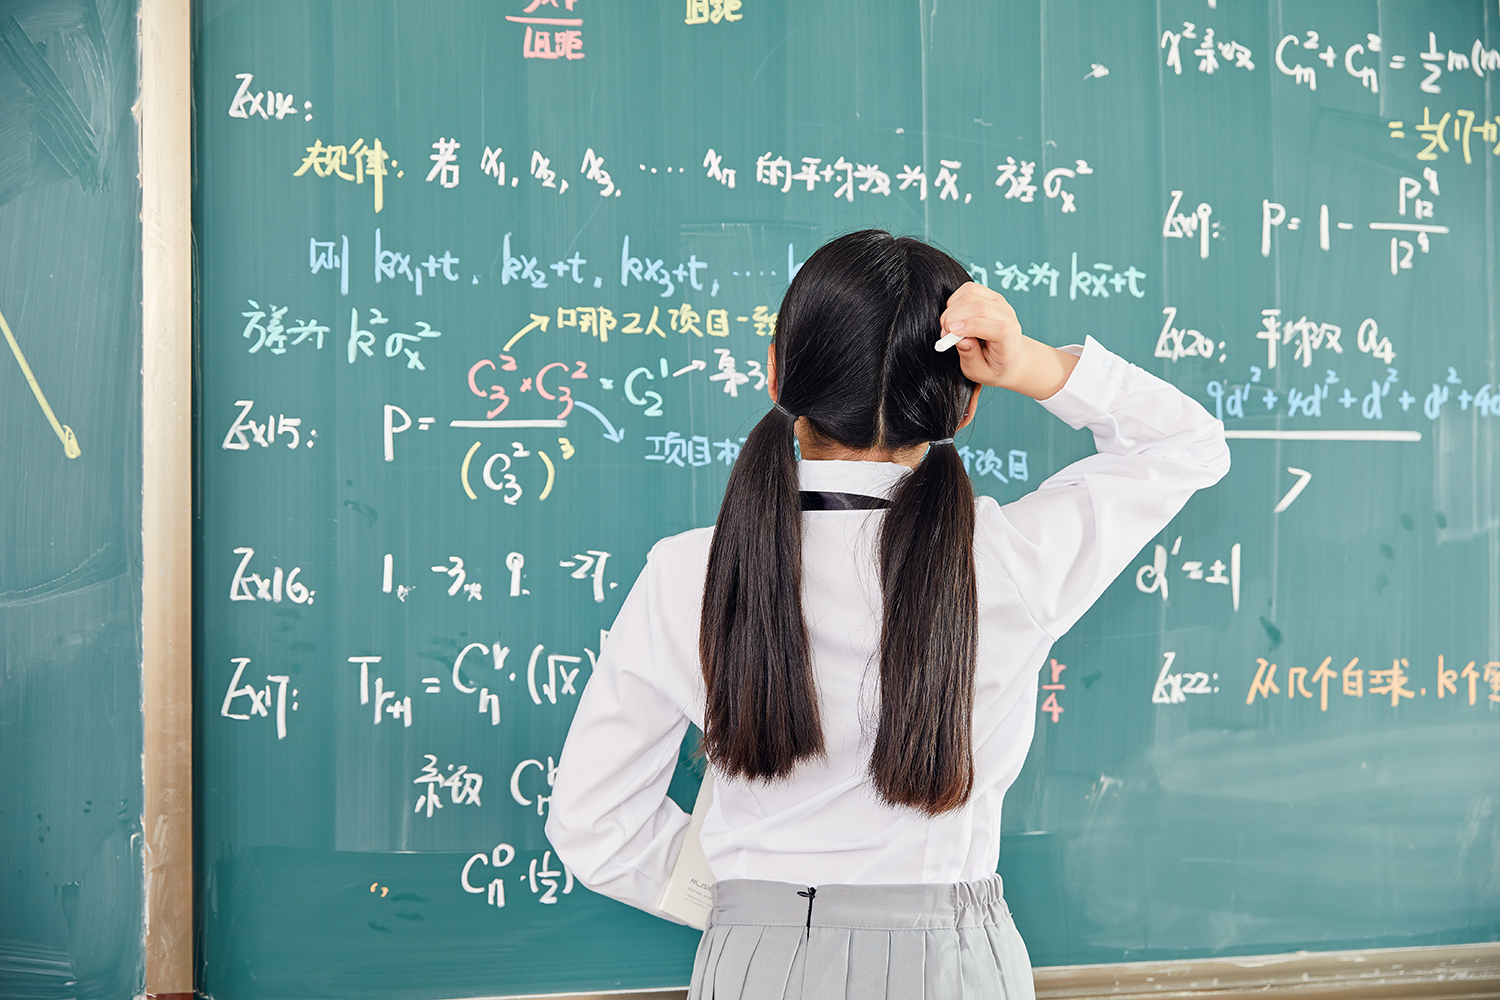 组距
组距
Ex14:
规律: 若 x₁, x₂, x₃, ···· xₙ 的平均数为 x̄, 方差σₓ²
则 kx₁+t, kx₂+t, kx₃+t, ····
数为 kx̄+t
方差为 k²σₓ²
哪2人项目一致
Ex15: P = C₃²×C₃² / (C₃²)³ · C₂¹ → 第3
项目
个项目
Ex16: 1, -3, 9, -27,
Ex17: Tᵣ₊₁ = Cₙʳ·(√x
r/4
系数 Cₙ
Cₙ⁰·(1/2)
x²系数 Cₘ²+Cₙ² = 1/2 m(m
= 1/2(17-n)
Ex19: P = 1 - P₁₂⁹ / 12⁹
Ex20: 平均数 a₄
9d'²+4d'²+d'²+d'²+4d / 7
d'=±1
Ex22: 从几个白球, k个